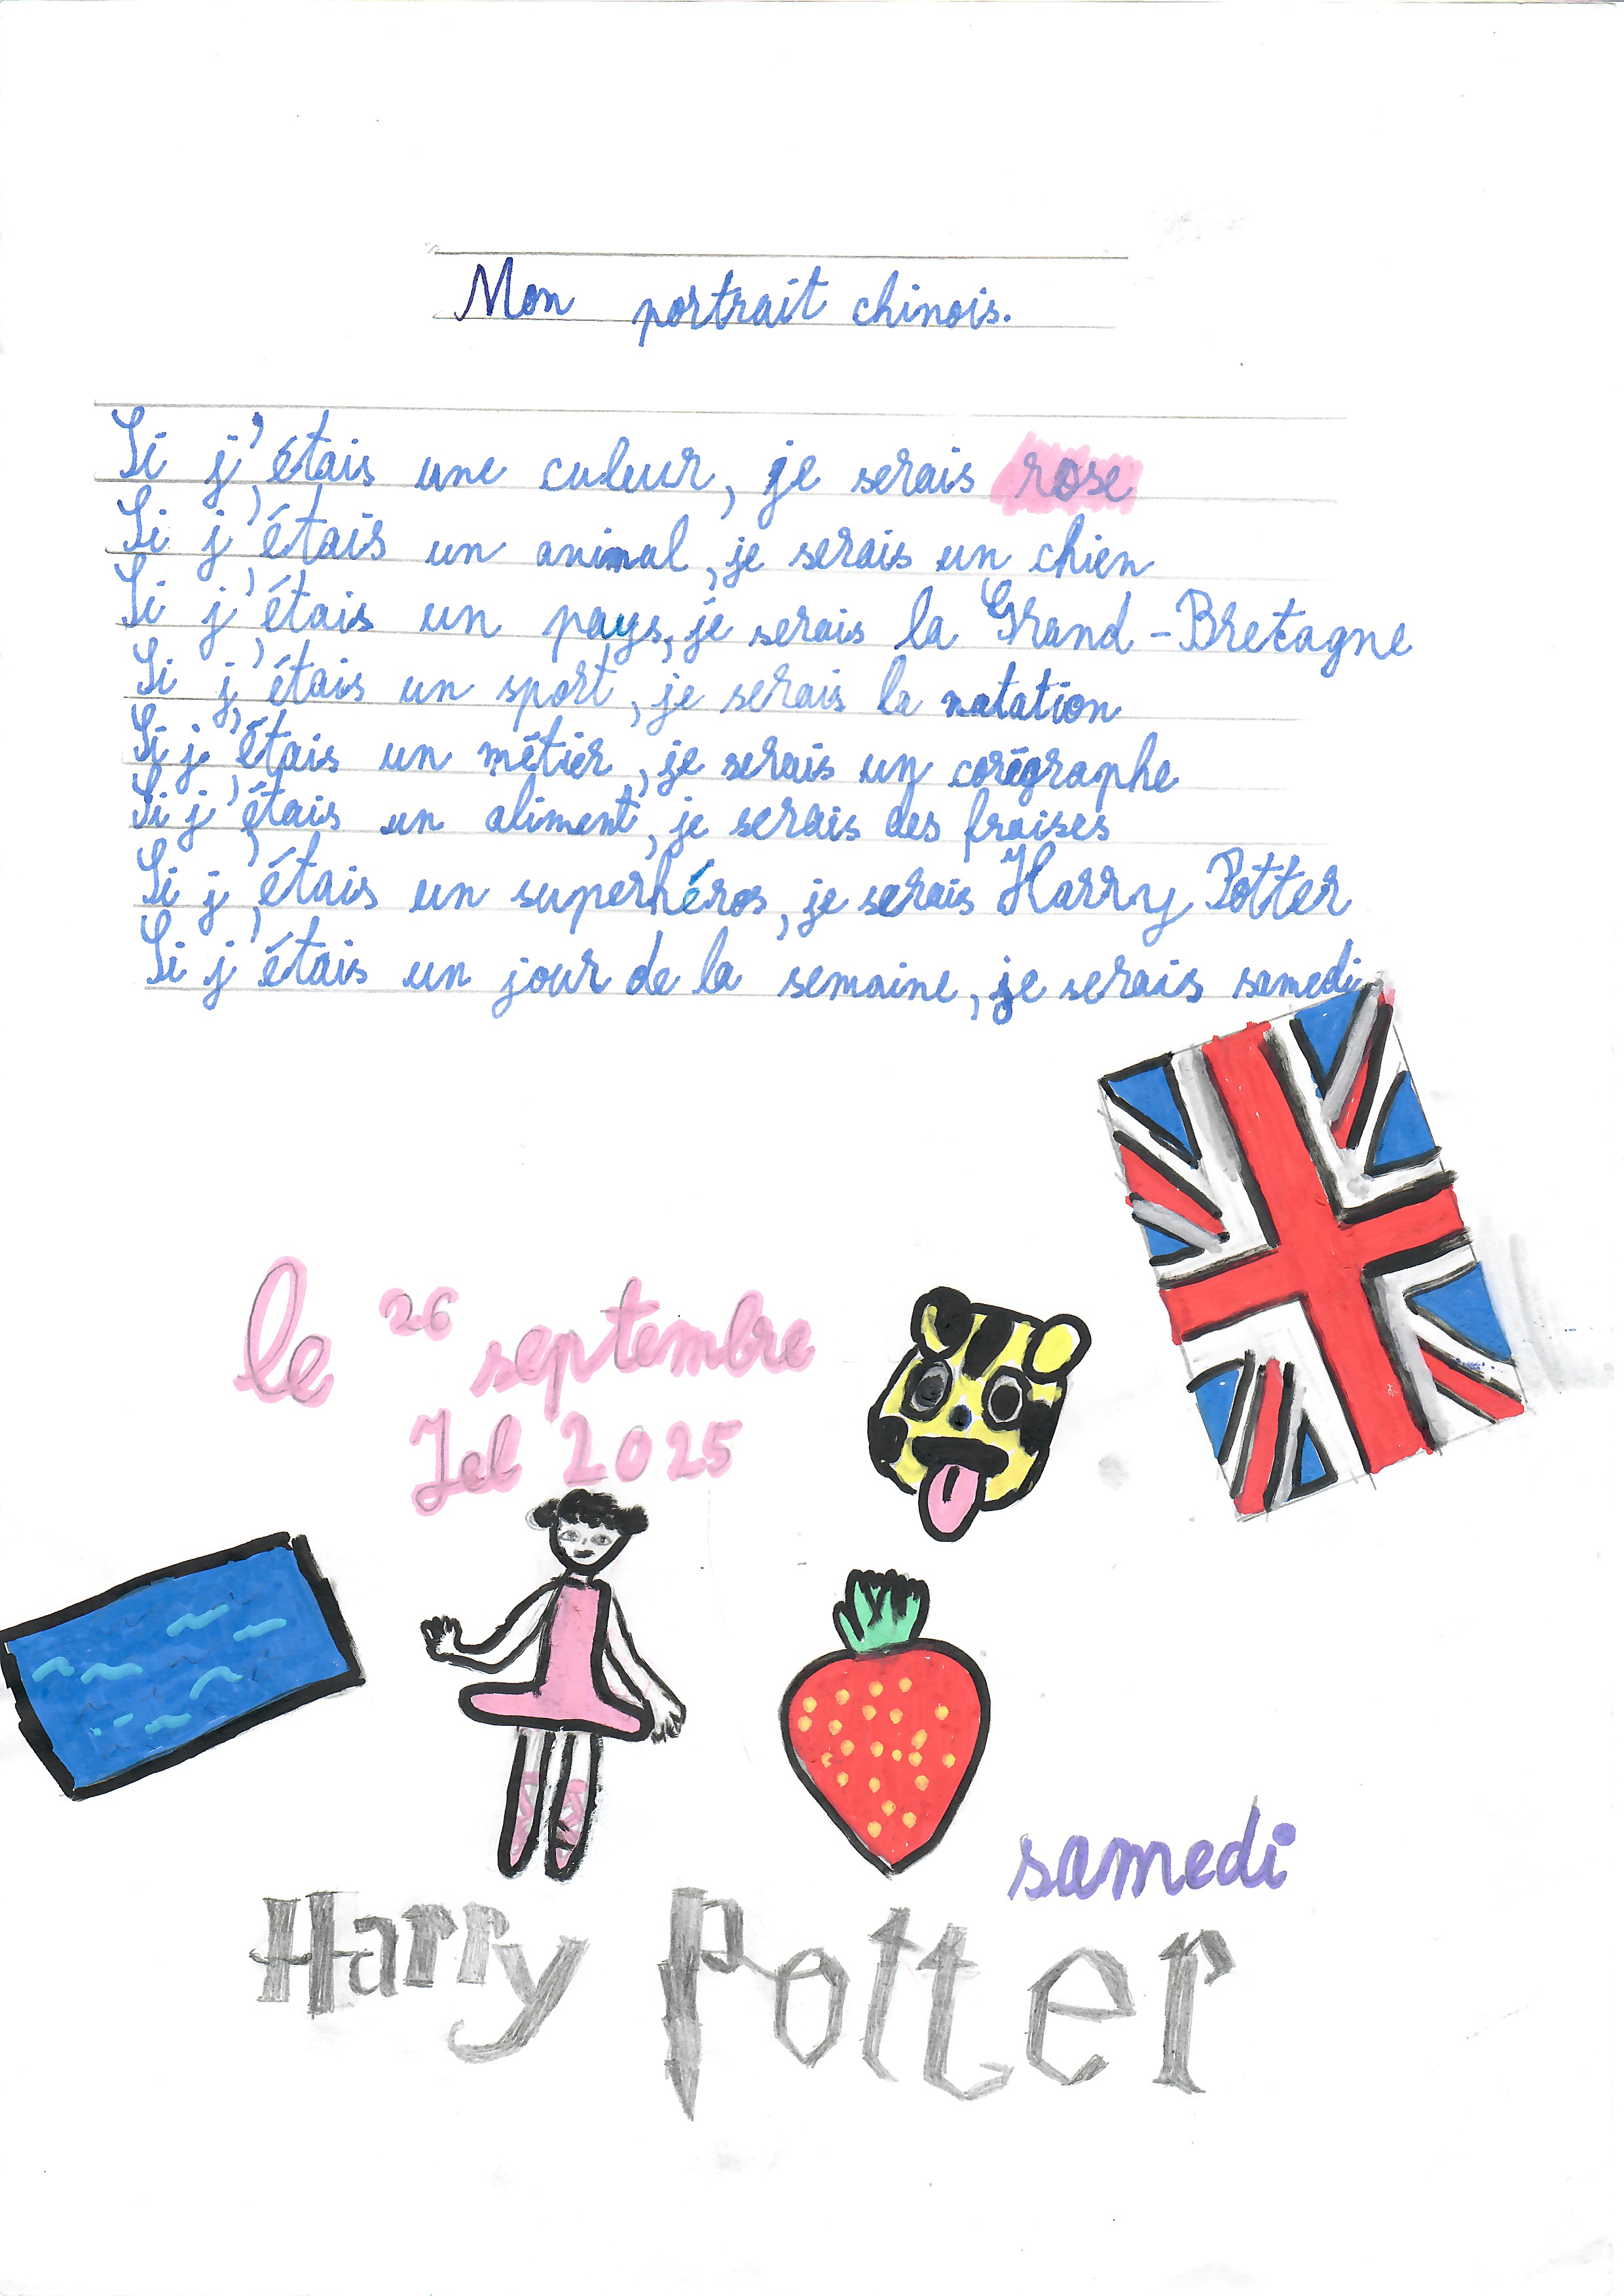 Mon portrait chinois.
Si j'étais une culeur, je serais rose
Si j'étais un animal, je serais un chien
Si j'étais un pays, je serais la Grand-Bretagne
Si j'étais un sport, je serais la natation
Si j'étais un métier, je serais un corégraphe
Si j'étais un aliment, je serais des fraises
Si j'étais un superhéros, je serais Harry Potter
Si j'étais un jour de la semaine, je serais samedi
le 26 septembre
2025
samedi
Harry Potter